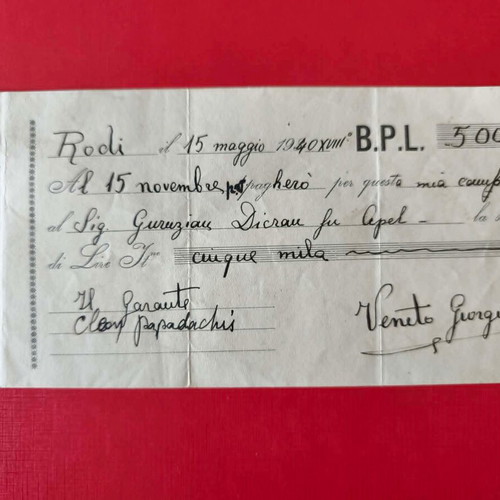 Rodi il 15 maggio 1940 XVIII° B.P.L. 500
Al 15 novembre, pagherò per questa mia camb
al Sig. Guruzian Dicran fu Apel - la
di Lire It.ne cinque mila
Il garante
Papadachis
Veneto Giorgi